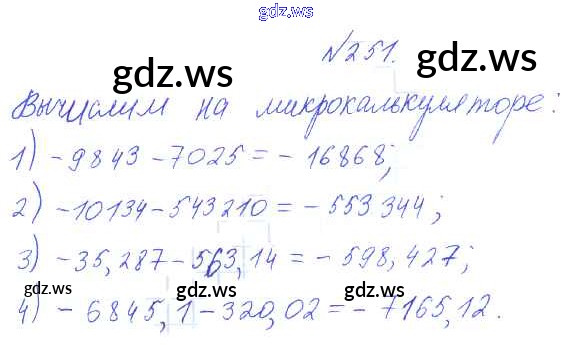 gdz.ws
№251.
gdz.ws
gdz.ws
Вычислим на микрокалькуляторе:
1) -9843 -7025 = - 16868;
2) -10134-543210 = - 553344;
3) -35,287-563,14 = - 598,427;
gdz.ws
gdz.ws
4) - 6845,1-320,02 = - 7165,12.